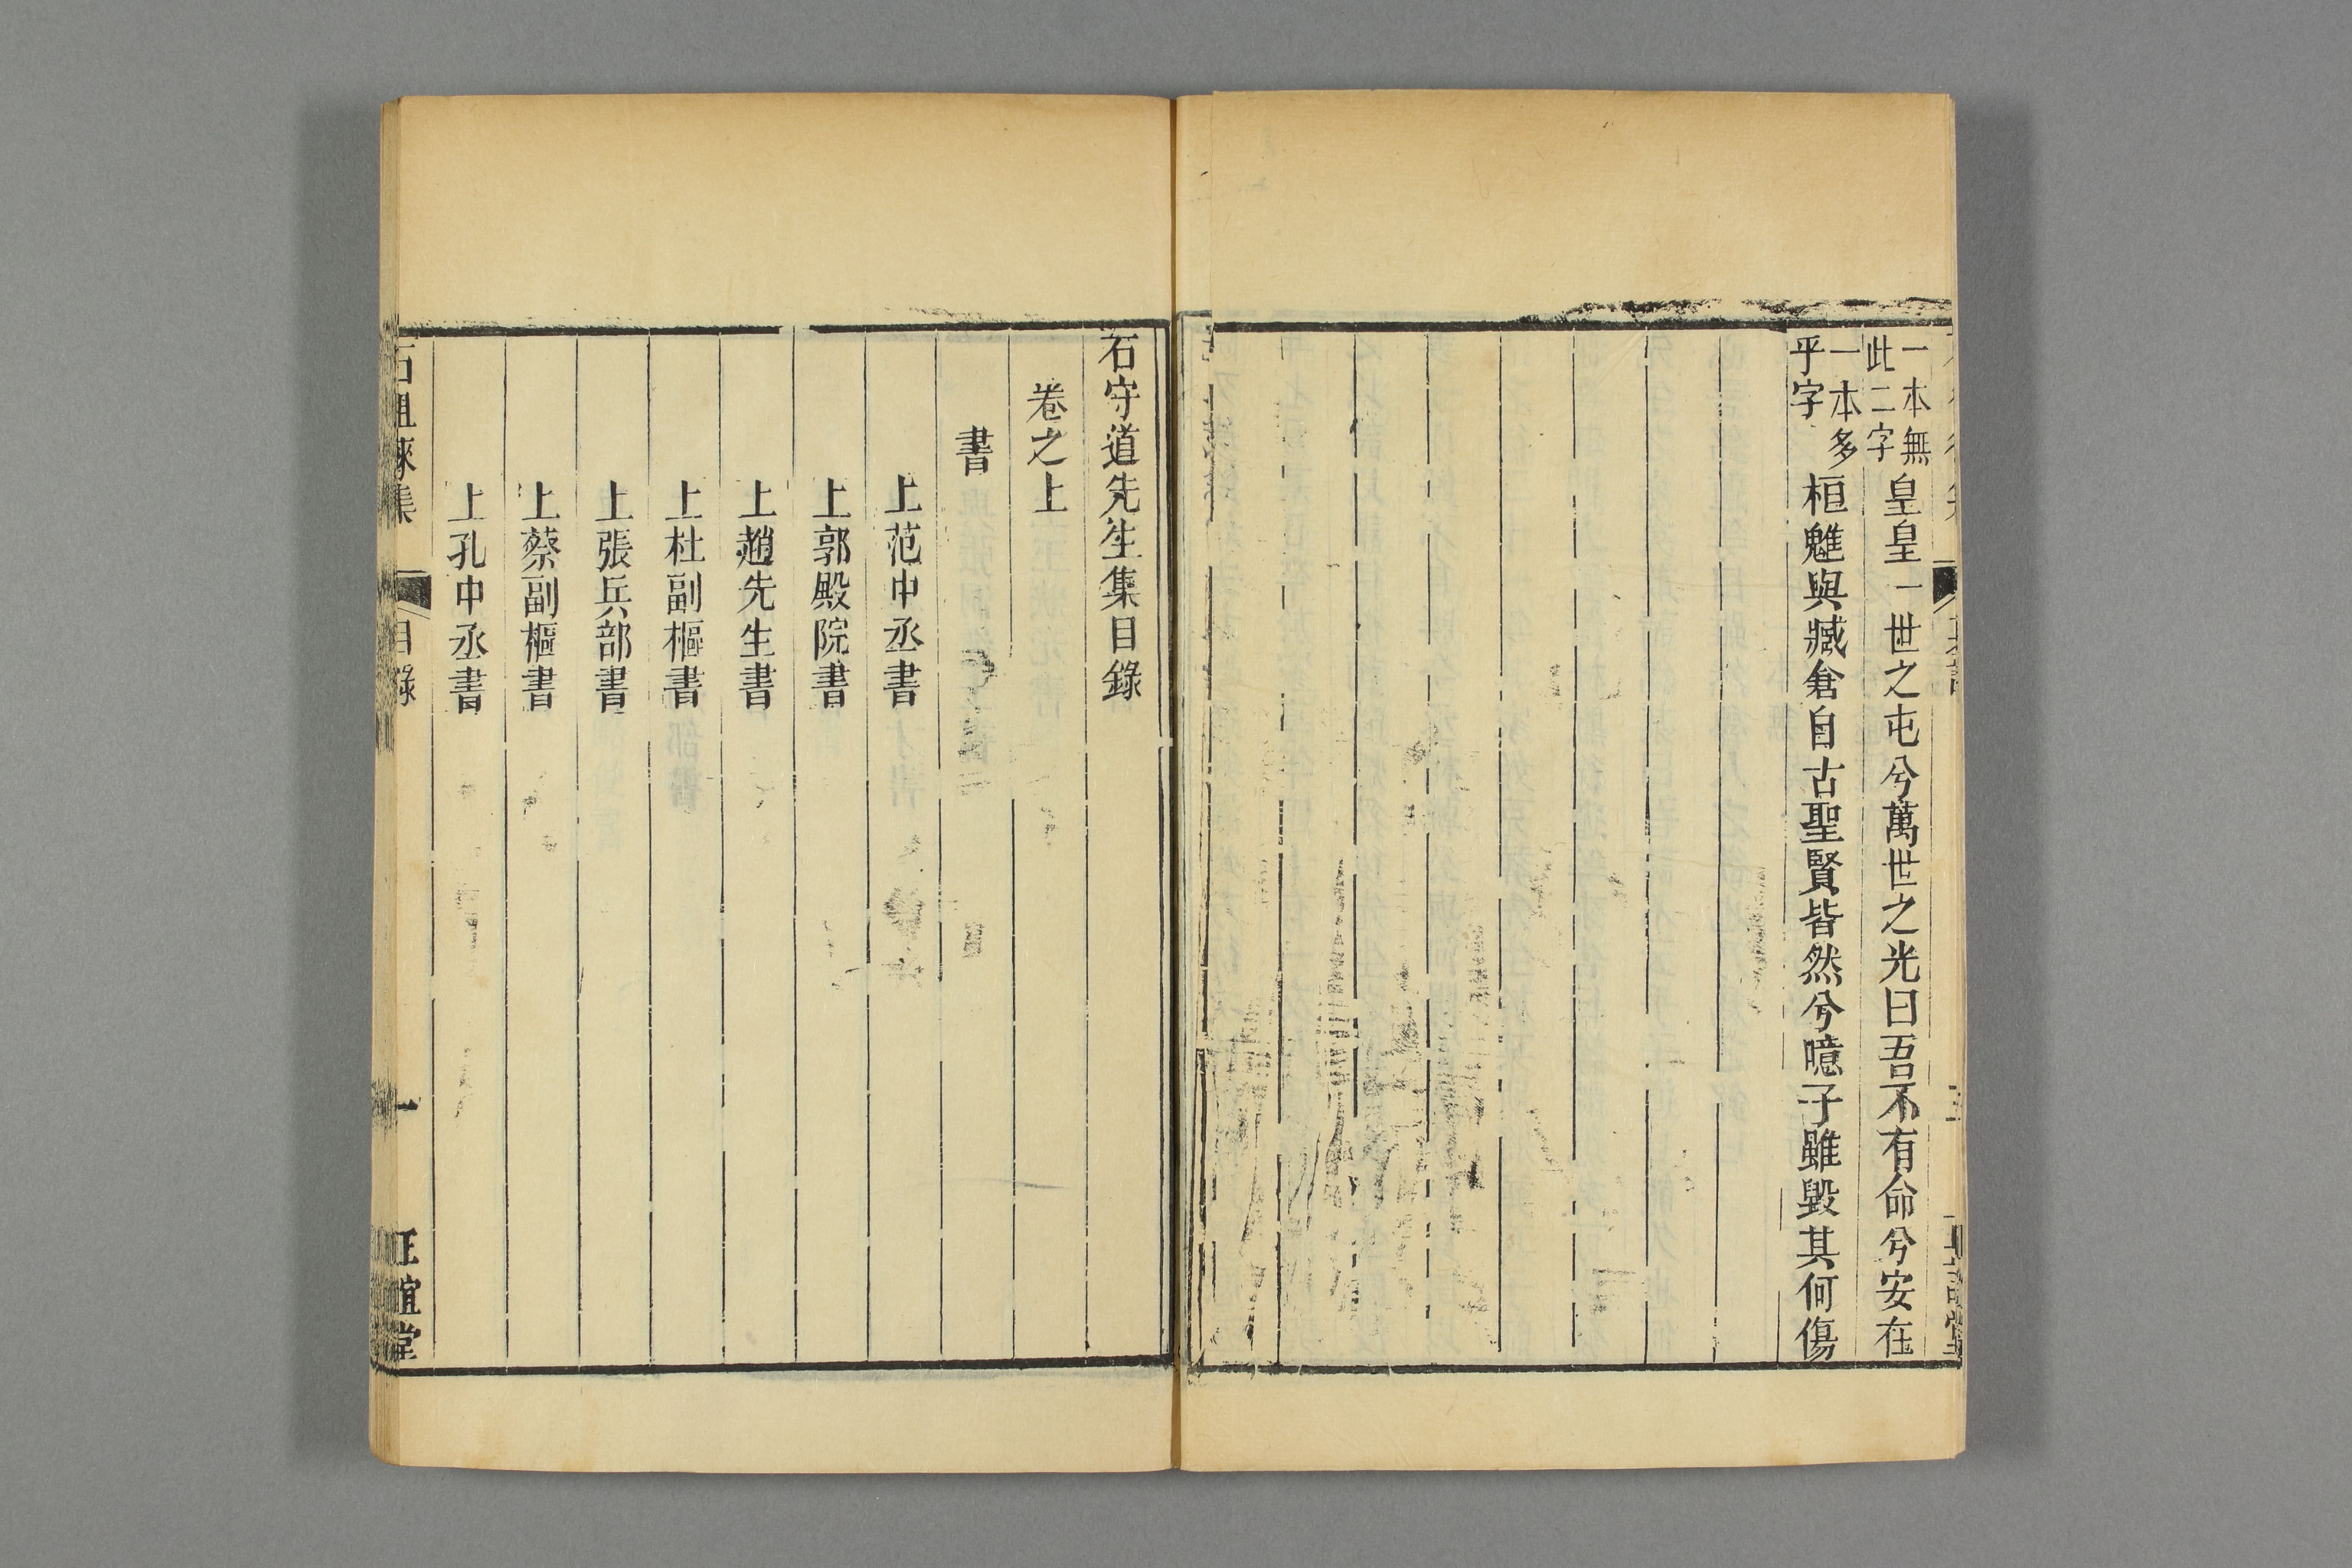 一本無
此二字
皇皇一世之屯兮萬世之光曰吾不有命兮安在
一本多
乎字
桓魋與臧倉自古聖賢皆然兮噫子雖毀其何傷
石守道先生集目錄
卷之上
書
上范中丞書
上郭殿院書
上趙先生書
上杜副樞書
上張兵部書
上蔡副樞書
上孔中丞書
石徂徠集
目錄
一
正誼堂